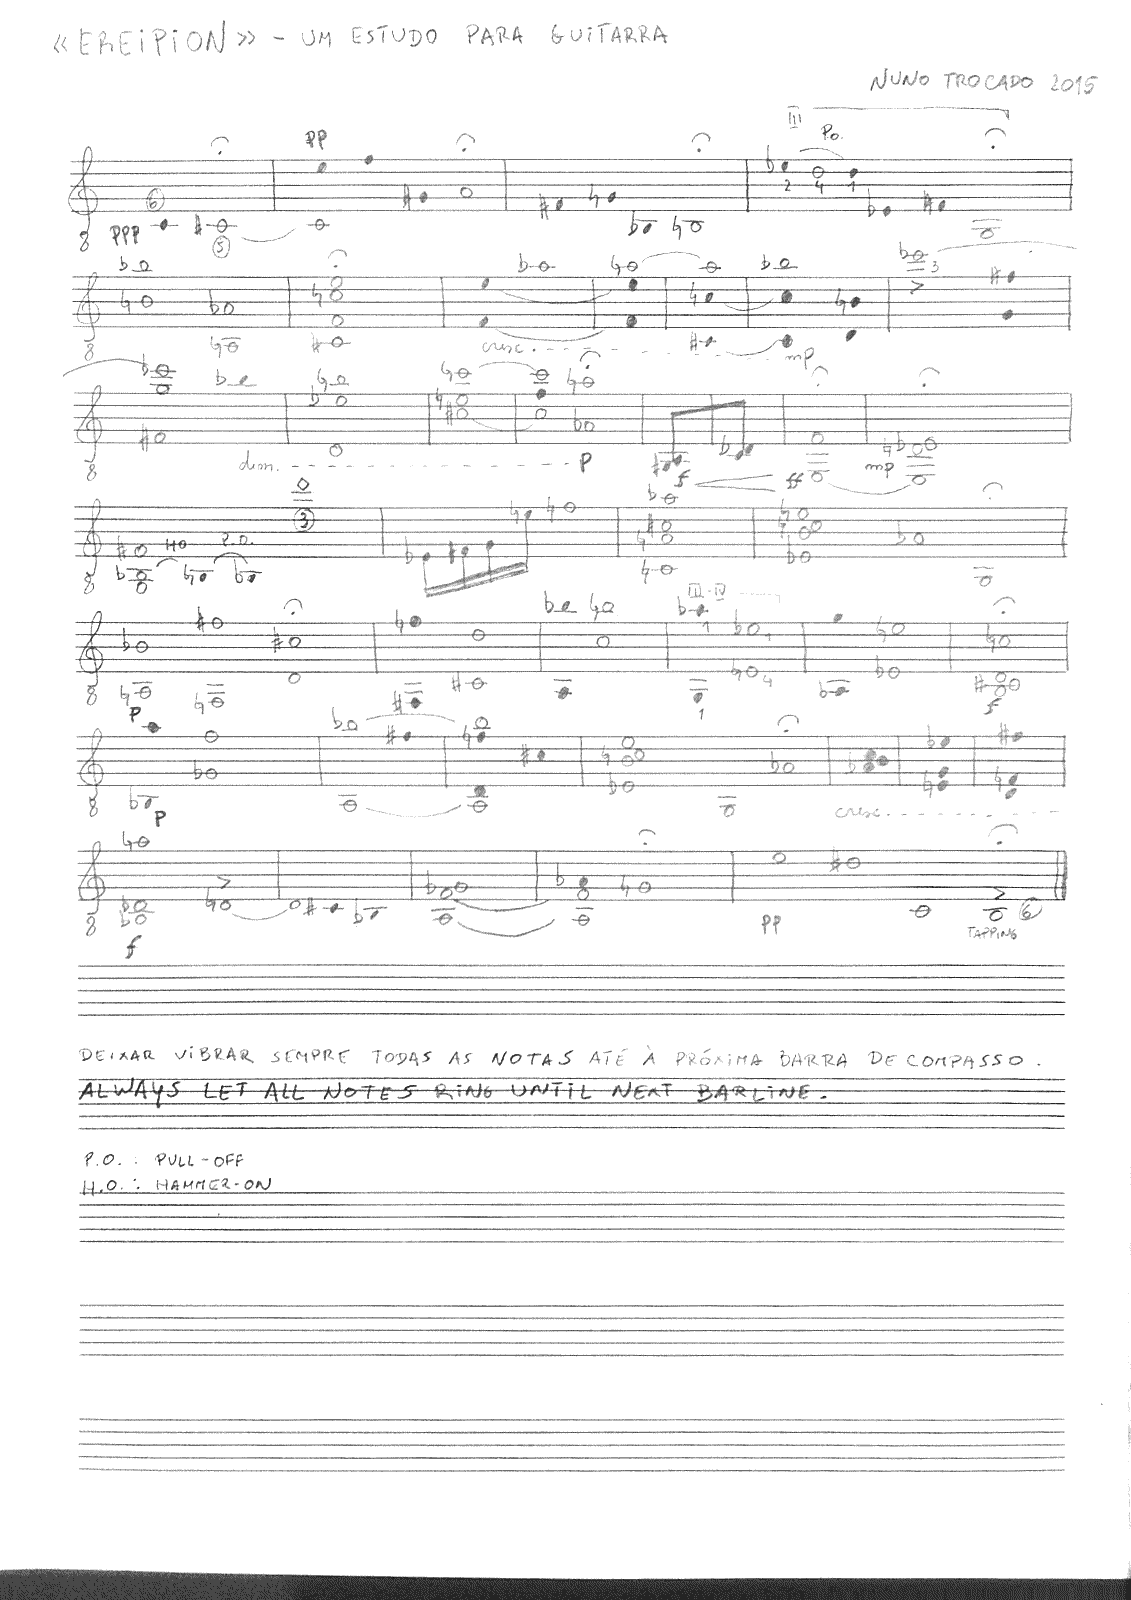 «EREIPION» - UM ESTUDO PARA GUITARRA
NUNO TROCADO 2015
III
PP
P.O.
6
2 4 1
PPP
5
8
3
cresc.
mp
8
dim.
P
f
ff
mp
8
3
HO P.O.
8
III-IV
1 1
4
1
8
P
f
P
cresc.
8
f
PP
6
TAPPING
8
DEIXAR VIBRAR SEMPRE TODAS AS NOTAS ATÉ À PRÓXIMA BARRA DE COMPASSO.
ALWAYS LET ALL NOTES RING UNTIL NEXT BARLINE.
P.O.: PULL-OFF
H.O.: HAMMER-ON